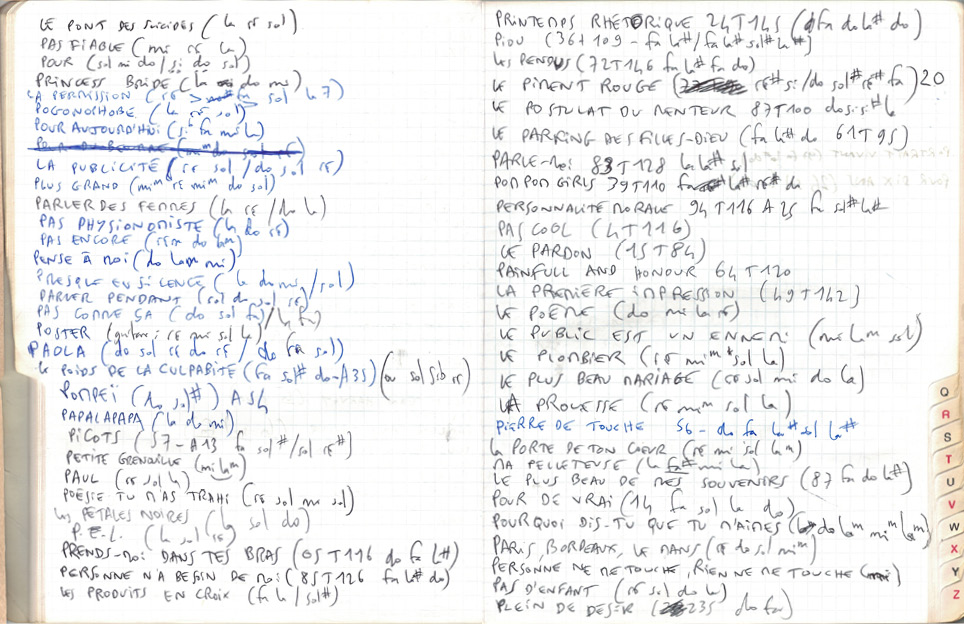 LE PONT DES SUICIDES (la ré sol)
PAS FIABLE (mi ré la)
POUR (sol mi do / si do sol)
PRINCESS BRIDE (la do mi)
LA PERMISSION (ré > fa > sol la 7)
POGONOPHOBE (la ré sol)
POUR AUJOURD'HUI (si fa mi la)
LA PUBLICITÉ (ré sol / do sol ré)
PLUS GRAND (mim ré mim do sol)
PARLER DES FEMMES (la ré / do la)
PAS PHYSIONOMISTE (la do ré)
PAS ENCORE (rém do lam)
PENSE À MOI (do lam mi)
PRESQUE EN SILENCE (la do mi / sol)
PARLER PENDANT (sol do sol ré)
PAS COMME ÇA (do sol fa) / la fa)
POSTER (guitare : ré mi sol la)
PAOLA (do sol ré do ré / do fa sol)
LE POIDS DE LA CULPABITÉ (fa sol# do - A35) (ou sol sib ré)
POMPEÏ (do sol#) A54
PAPALAPAPA (la do mi)
PICOTS (57 - A13 fa sol# / sol ré#)
PETITE GRENOUILLE (mi lam)
PAUL (ré sol la)
POÉSIE TU M'AS TRAHI (ré sol mi sol)
LES PÉTALES NOIRES (la sol do)
P.E.L. (la sol ré)
PRENDS-MOI DANS TES BRAS (05T116 do fa la#)
PERSONNE N'A BESOIN DE MOI (85T126 fa la# do)
LES PRODUITS EN CROIX (fa la / sol#)
PRINTEMPS RHÉTORIQUE 24T145 (fa do la# do)
PIOU (36T109 - fa la# / fa la# sol# la#)
LES PENDUS (72T146 fa la# fa do)
LE PIMENT ROUGE (ré# si / do sol# ré# fa) 20
LE POSTULAT DU MENTEUR 87T100 do si si# la
LE PARKING DES FILLES-DIEU (fa la# do 61T95)
PARLE-MOI 83T128 la la# sol
POM POM GIRLS 39T110 fa la# ré# do
PERSONNALITÉ MORALE 94T116 A25 fa sol# la#
PAS COOL (4T116)
LE PARDON (15T84)
PAINFULL AND HONOUR 64T120
LA PREMIÈRE IMPRESSION (49T142)
LE POÈME (do mi la ré)
LE PUBLIC EST UN ENNEMI (mi lam sol)
LE PLOMBIER (ré mim sol la)
LE PLUS BEAU MARIAGE (ré sol mi do la)
LA PROUESSE (ré mim sol la)
PIERRE DE TOUCHE 56 - do fa la# sol la#
LA PORTE DE TON COEUR (ré mi sol lam)
MA PELLETEUSE (la fa# mi la)
LE PLUS BEAU DE MES SOUVENIRS (87 fa do la#)
POUR DE VRAI (14 fa sol la do)
POURQUOI DIS-TU QUE TU M'AIMES (do lam mim lam)
PARIS, BORDEAUX, LE MANS (ré do sol mim)
PERSONNE NE ME TOUCHE, RIEN NE ME TOUCHE (mi)
PAS D'ENFANT (ré sol do la)
PLEIN DE DÉSIR (235 do fa)
Q
R
S
T
U
V
W
X
Y
Z